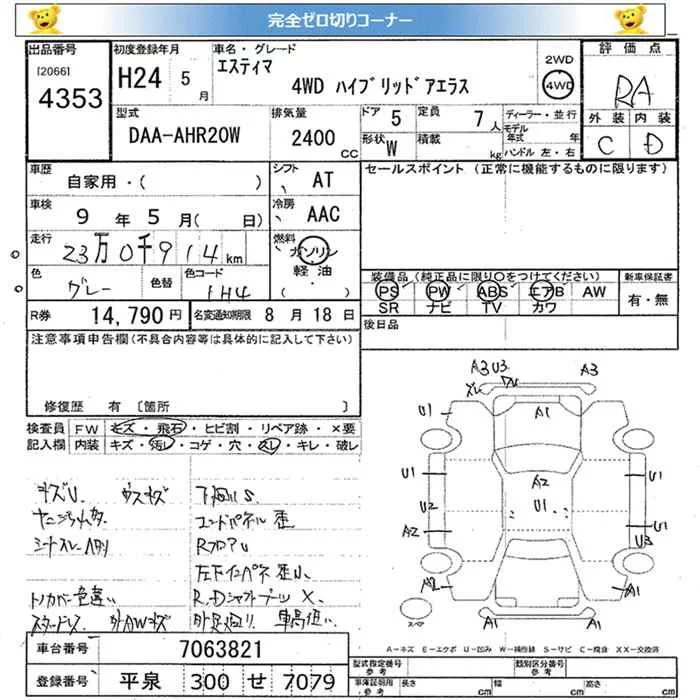 完全ゼロ切りコーナー
出品番号
[2066]
4353
初度登録年月
H24 5月
車名・グレード
エスティマ
4WD ハイブリッドアエラス
2WD
4WD
評価点
RA
外装 内装
C D
型式
DAA-AHR20W
排気量
2400 CC
ドア 5
定員 7人
形状 W
積載 kg
ディーラー・並行
モデル年式 年
ハンドル 左・右
車歴
自家用・( )
シフト AT
車検
9年5月( 日)
冷房 AAC
走行
23万0千914km
燃料
ガソリン
軽油
( )
色
グレー
色替
色コード
1H4
R券 14,790円
名変通知期限 8月18日
セールスポイント(正常に機能するものに限ります)
装備品(純正品に限り○をつけてください)
PS PW ABS エアB AW
SR ナビ TV カワ
新車保証書
有・無
後日品
注意事項申告欄(不具合内容等は具体的に記入して下さい)
修復歴 有 [箇所 ]
検査員記入欄
FW キズ・飛石・ヒビ割・リペア跡・×要
内装 キズ・汚レ・コゲ・穴・スレ・キレ・破レ
キズU. ウスキズ
下廻りS
コンドパネル歪
RフロアU
トノカバー色違い
スタッドレス 外AWキズ
車高低い
A3 U3 A3
U1 A1
A2
U1 U1 U1
U2
A2 U1
U3
A2 A1
A1 A1
スペア
A-キズ E-エクボ U-凹み W-補修跡 S-サビ C-腐食 XX-交換済
車台番号 7063821
登録番号 平泉 300 せ 7079
型式指定番号 参考
類別区分番号 参考
車庫証明用 参考
長さ cm
幅 cm
高さ cm